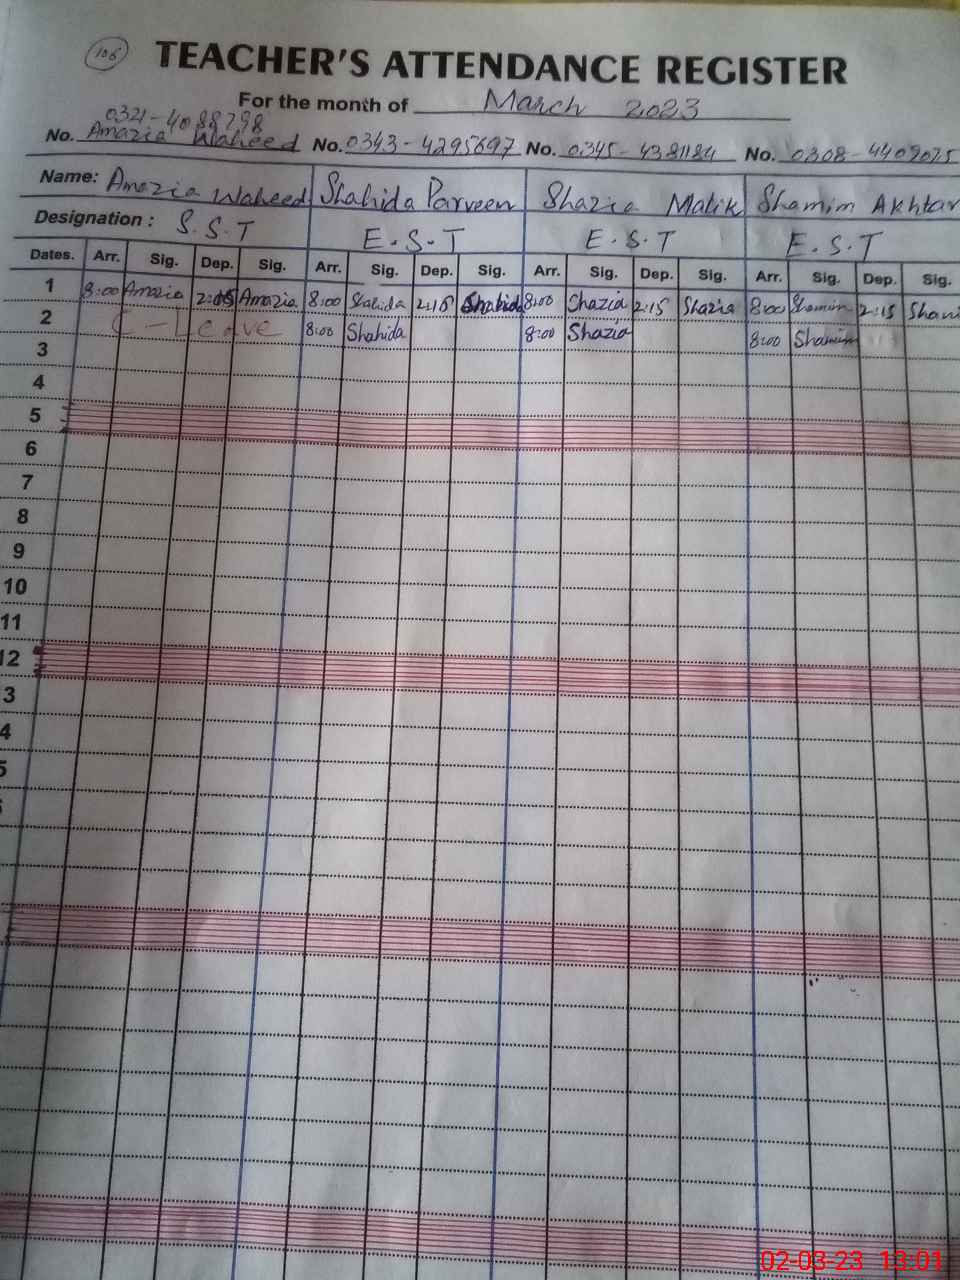 106
TEACHER'S ATTENDANCE REGISTER
For the month of March 2023
0321-4088798
No. Amazia Waheed No. 0343-4295697 No. 0345-4381184 No. 0308-4409025
Name: Amazia Waheed Shahida Parveen Shazia Malik Shamim Akhtar
Designation : S.S.T E.S.T E.S.T E.S.T
Dates. Arr. Sig. Dep. Sig. Arr. Sig. Dep. Sig. Arr. Sig. Dep. Sig. Arr. Sig. Dep. Sig.
1 8:00 Amazia 2:15 Amazia 8:00 Shahida 2:15 Shahida 8:00 Shazia 2:15 Shazia 8:00 Shamim 2:15 Shami
2 C-Leave 8:00 Shahida 8:00 Shazia 8:00 Shamim
3
4
5
6
7
8
9
10
11
12
3
4
5
02-03-23 13:01